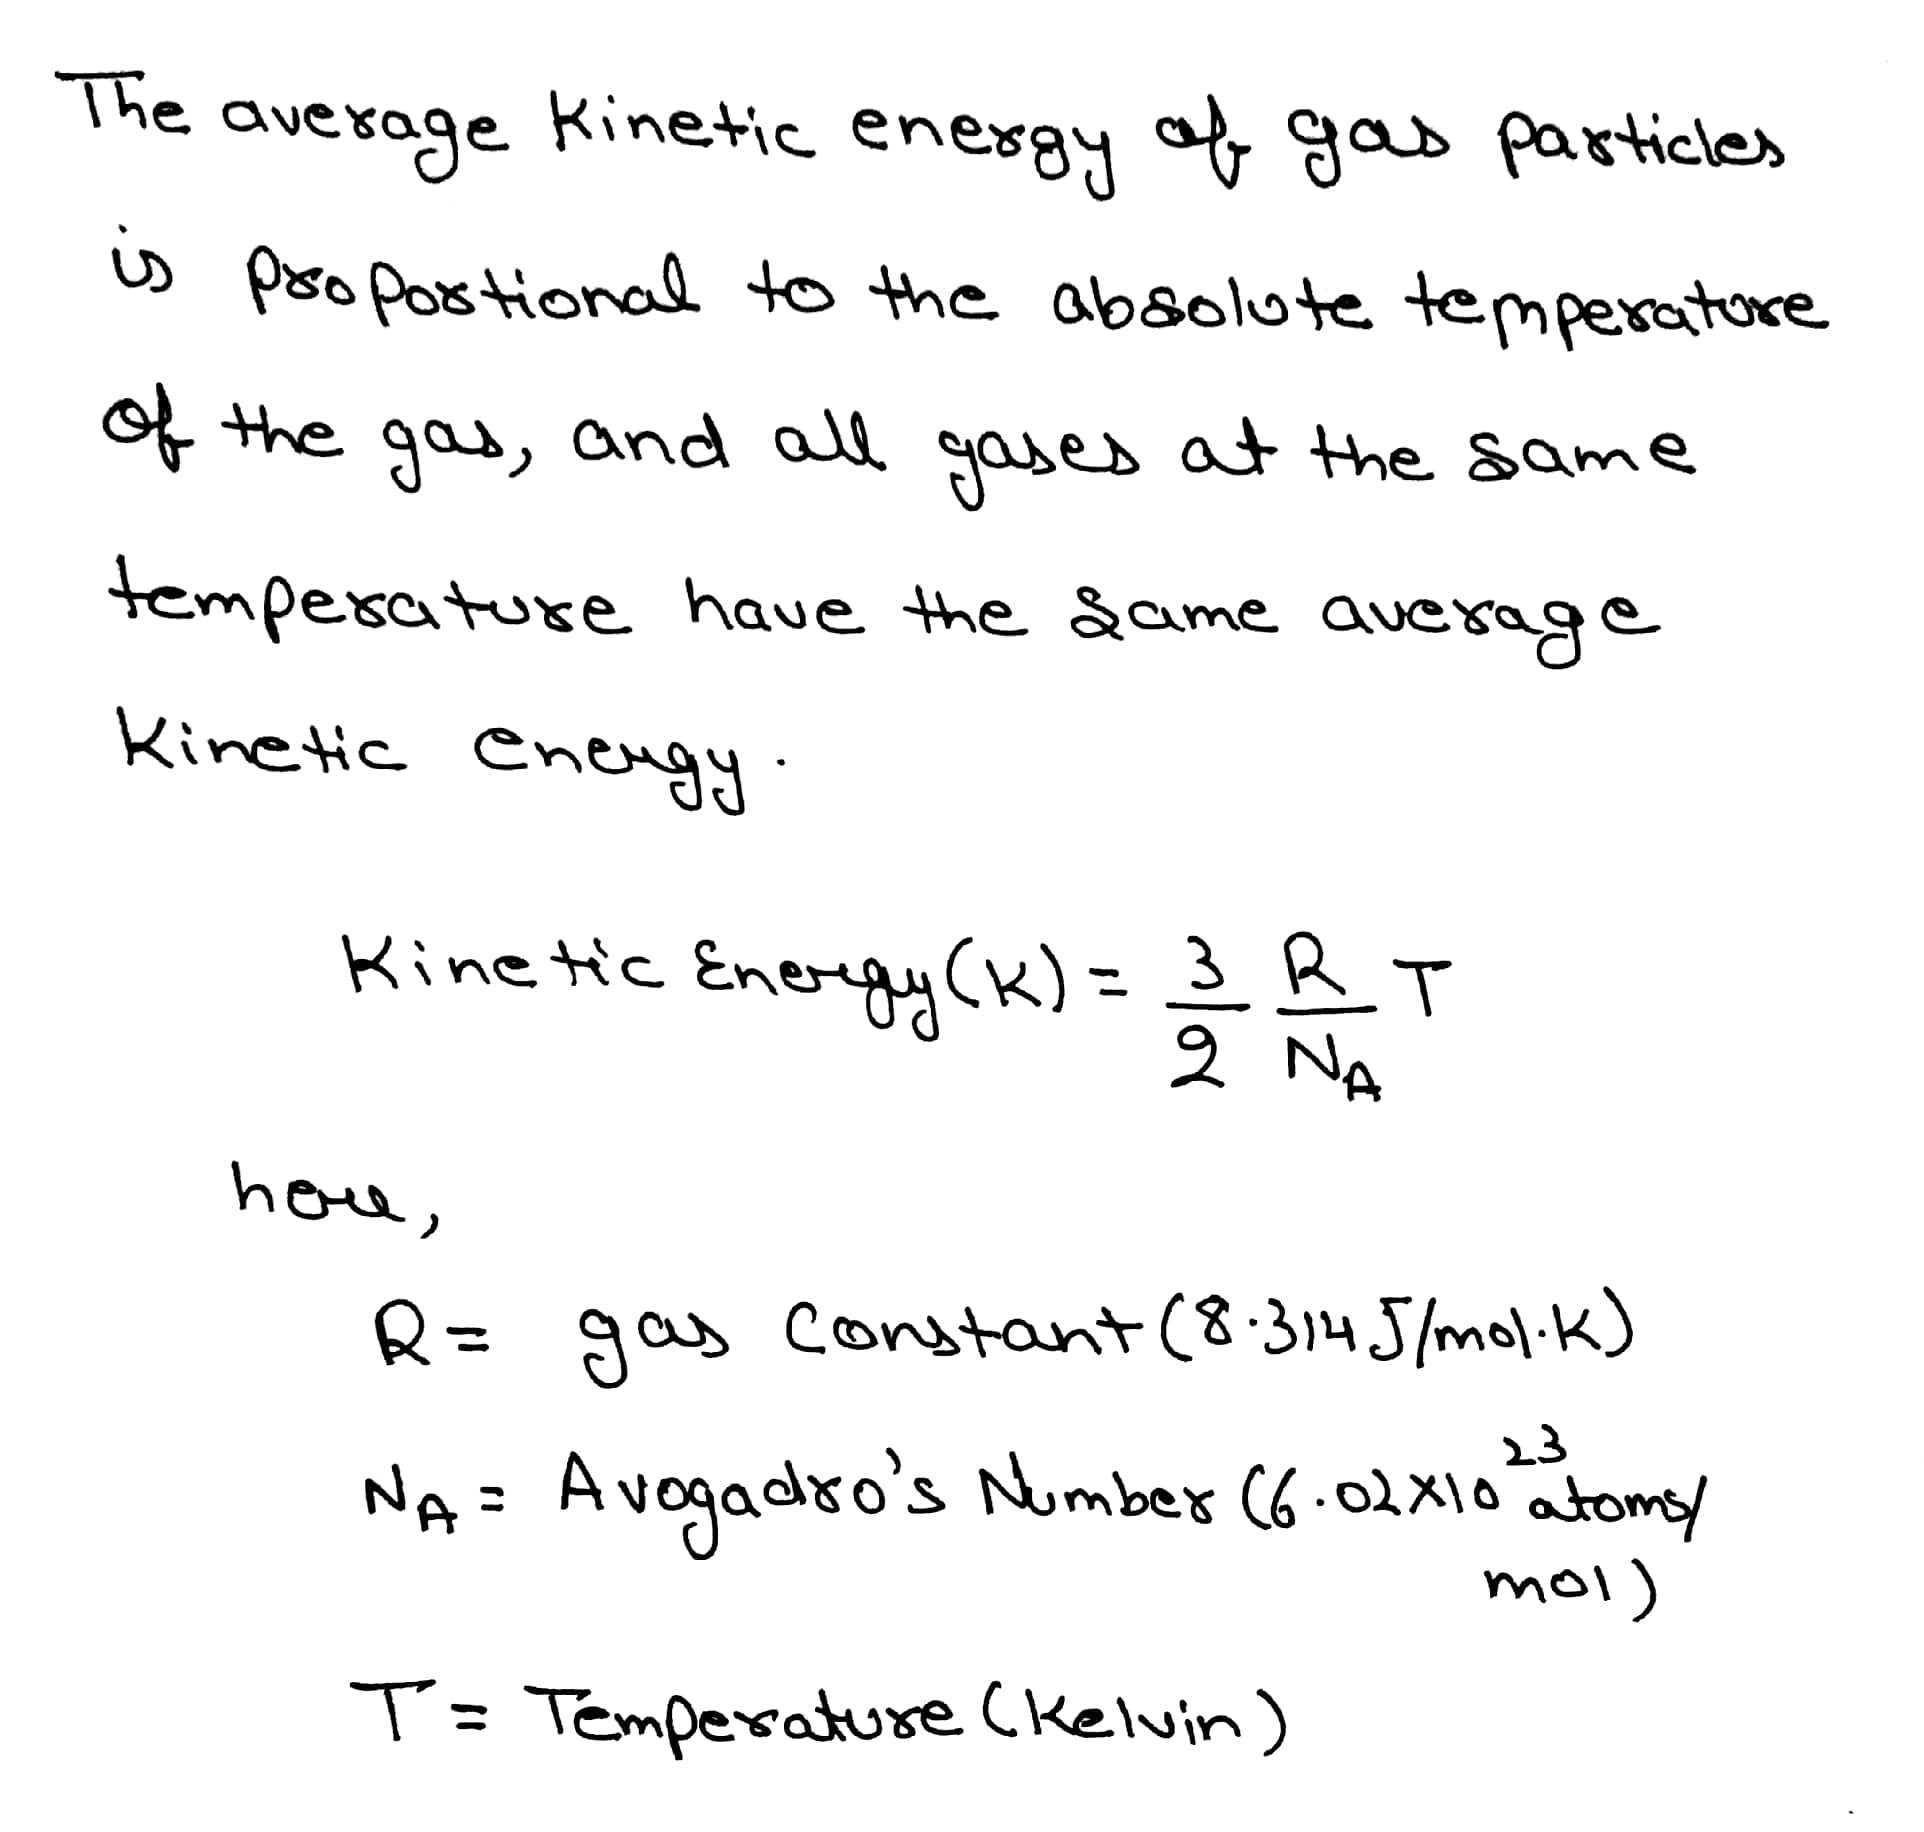 The average kinetic energy of gas particles
is proportional to the absolute temperature
of the gas, and all gases at the same
temperature have the same average
kinetic energy.
Kinetic Energy (K) = 3/2 R/N_A T
here,
R = gas constant (8.314 J/mol.K)
N_A = Avogadro's Number (6.02 × 10^23 atoms/
mol)
T = Temperature (Kelvin)